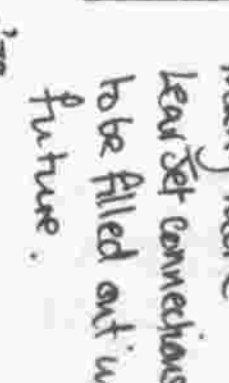 many more
Lear Jet connections
to be filled out in
future.